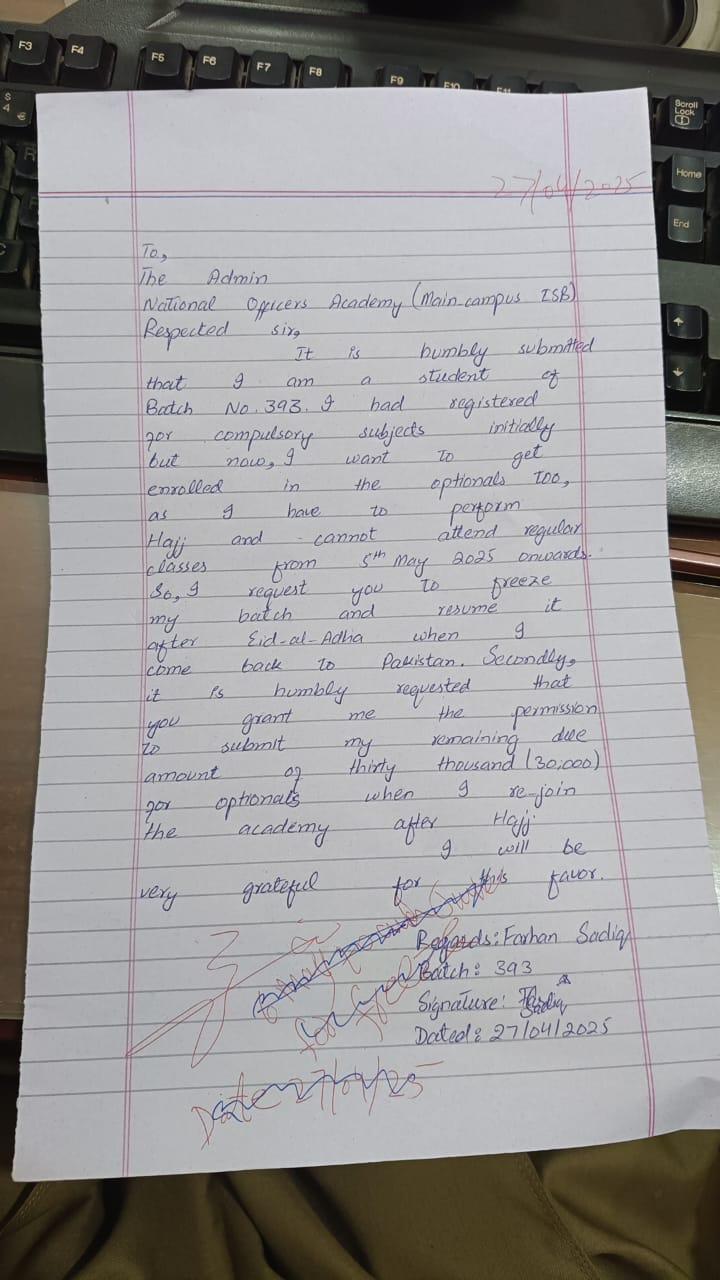 F3 F4 F5 F6 F7 F8 F9 F10 F11
$ 4 €
Scroll Lock
Home
End
27/04/2025
To,
The Admin
National Officers Academy (Main campus ISB)
Respected sir,
It is humbly submitted
that I am a student of
Batch No. 393. I had registered
for compulsory subjects initially
but now, I want to get
enrolled in the optionals too,
as I have to perform
Hajj and cannot attend regular
classes from 5th May 2025 onwards.
So, I request you to freeze
my batch and resume it
after Eid-al-Adha when I
come back to Pakistan. Secondly,
it is humbly requested that
you grant me the permission
to submit my remaining due
amount of thirty thousand (30,000)
for optionals when I re-join
the academy after Hajj.
I will be
very grateful for this favor.
Regards: Farhan Sadiq
Batch: 393
Signature:
Dated: 27/04/2025
for
Date 27/04/25